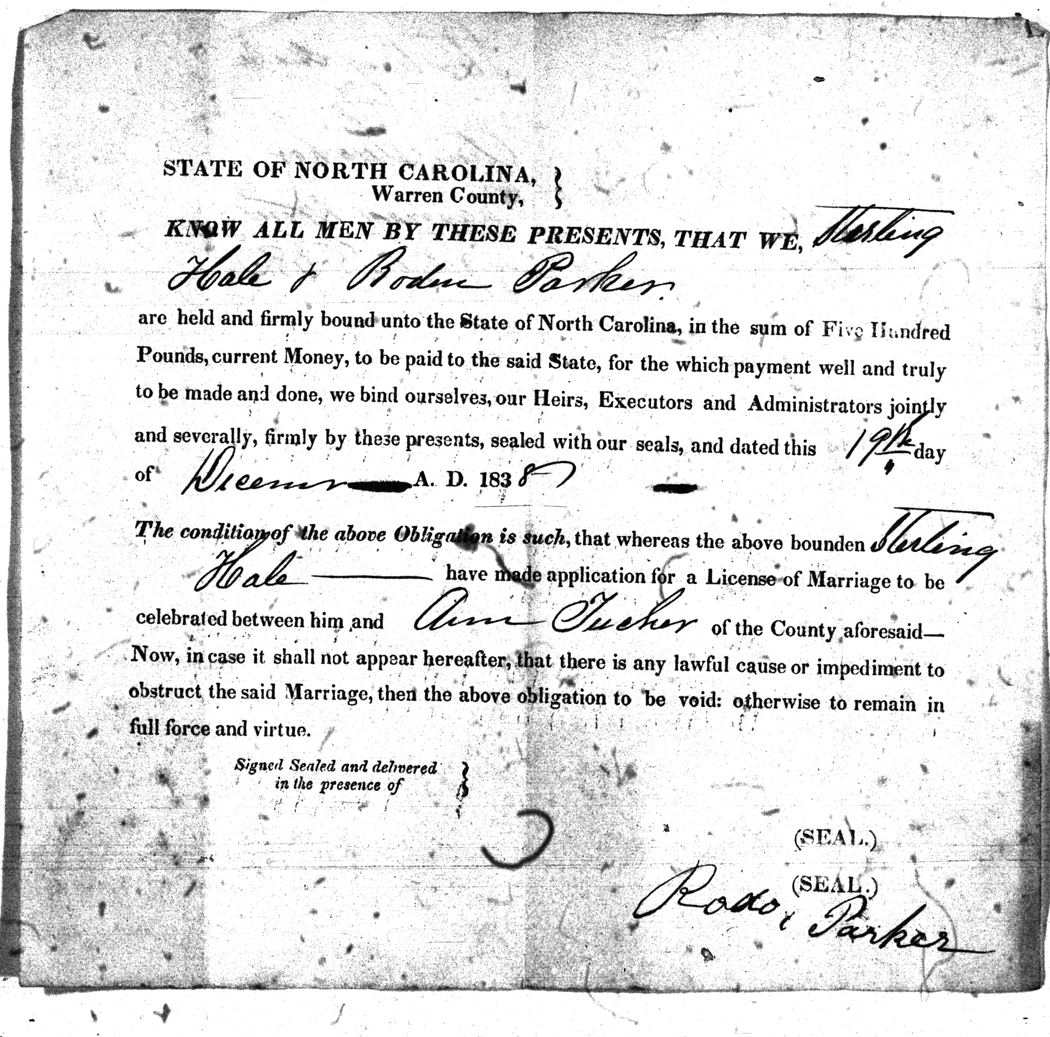 STATE OF NORTH CAROLINA, }
Warren County,
KNOW ALL MEN BY THESE PRESENTS, THAT WE, Sterling
Hale & Roden Parker
are held and firmly bound unto the State of North Carolina, in the sum of Five Hundred
Pounds, current Money, to be paid to the said State, for the which payment well and truly
to be made and done, we bind ourselves, our Heirs, Executors and Administrators jointly
and severally, firmly by these presents, sealed with our seals, and dated this 19th day
of A. D. 1838
The condition of the above Obligation is such, that whereas the above bounden Sterling
Hale have made application for a License of Marriage to be
celebrated between him and Ann Tucker of the County aforesaid—
Now, in case it shall not appear hereafter, that there is any lawful cause or impediment to
obstruct the said Marriage, then the above obligation to be void: otherwise to remain in
full force and virtue.
Signed Sealed and delivered }
in the presence of
(SEAL.)
(SEAL.)
Parker